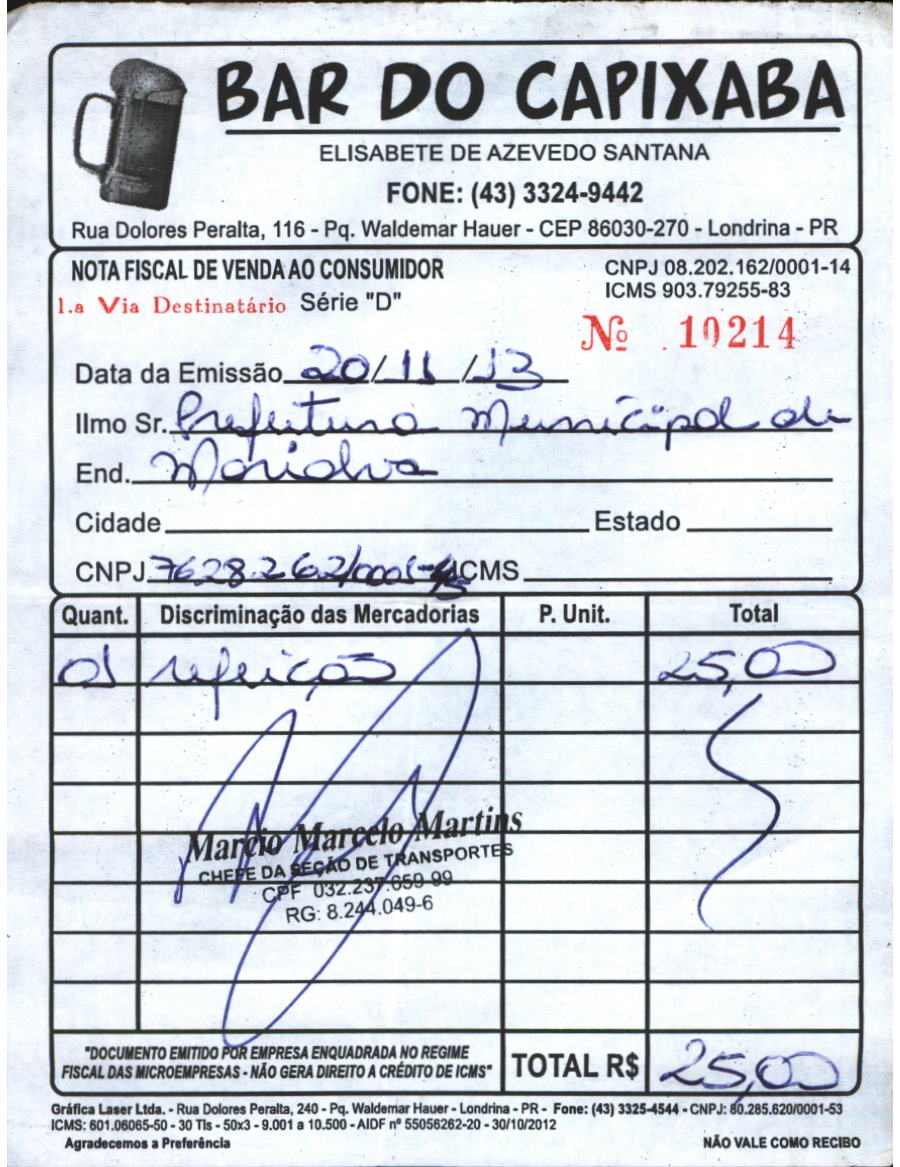 BAR DO CAPIXABA
ELISABETE DE AZEVEDO SANTANA
FONE: (43) 3324-9442
Rua Dolores Peralta, 116 - Pq. Waldemar Hauer - CEP 86030-270 - Londrina - PR
NOTA FISCAL DE VENDA AO CONSUMIDOR
CNPJ 08.202.162/0001-14
1.a Via Destinatário Série "D"
ICMS 903.79255-83
Nº 10214
Data da Emissão 20/11/13
Ilmo Sr. Prefeitura Municipal de
End. Marialva
Cidade Estado
CNPJ 76.282.62/0001- ICMS
Quant. Discriminação das Mercadorias P. Unit. Total
01 refeição 25,00
Marcio Marcelo Martins
CHEFE DA SEÇÃO DE TRANSPORTES
CPF 032.237.659-99
RG: 8.244.049-6
"DOCUMENTO EMITIDO POR EMPRESA ENQUADRADA NO REGIME
FISCAL DAS MICROEMPRESAS - NÃO GERA DIREITO A CRÉDITO DE ICMS"
TOTAL R$ 25,00
Gráfica Laser Ltda. - Rua Dolores Peralta, 240 - Pq. Waldemar Hauer - Londrina - PR - Fone: (43) 3325-4544 - CNPJ: 80.285.620/0001-53
ICMS: 601.06065-50 - 30 Tls - 50x3 - 9.001 a 10.500 - AIDF nº 55056262-20 - 30/10/2012
Agradecemos a Preferência
NÃO VALE COMO RECIBO